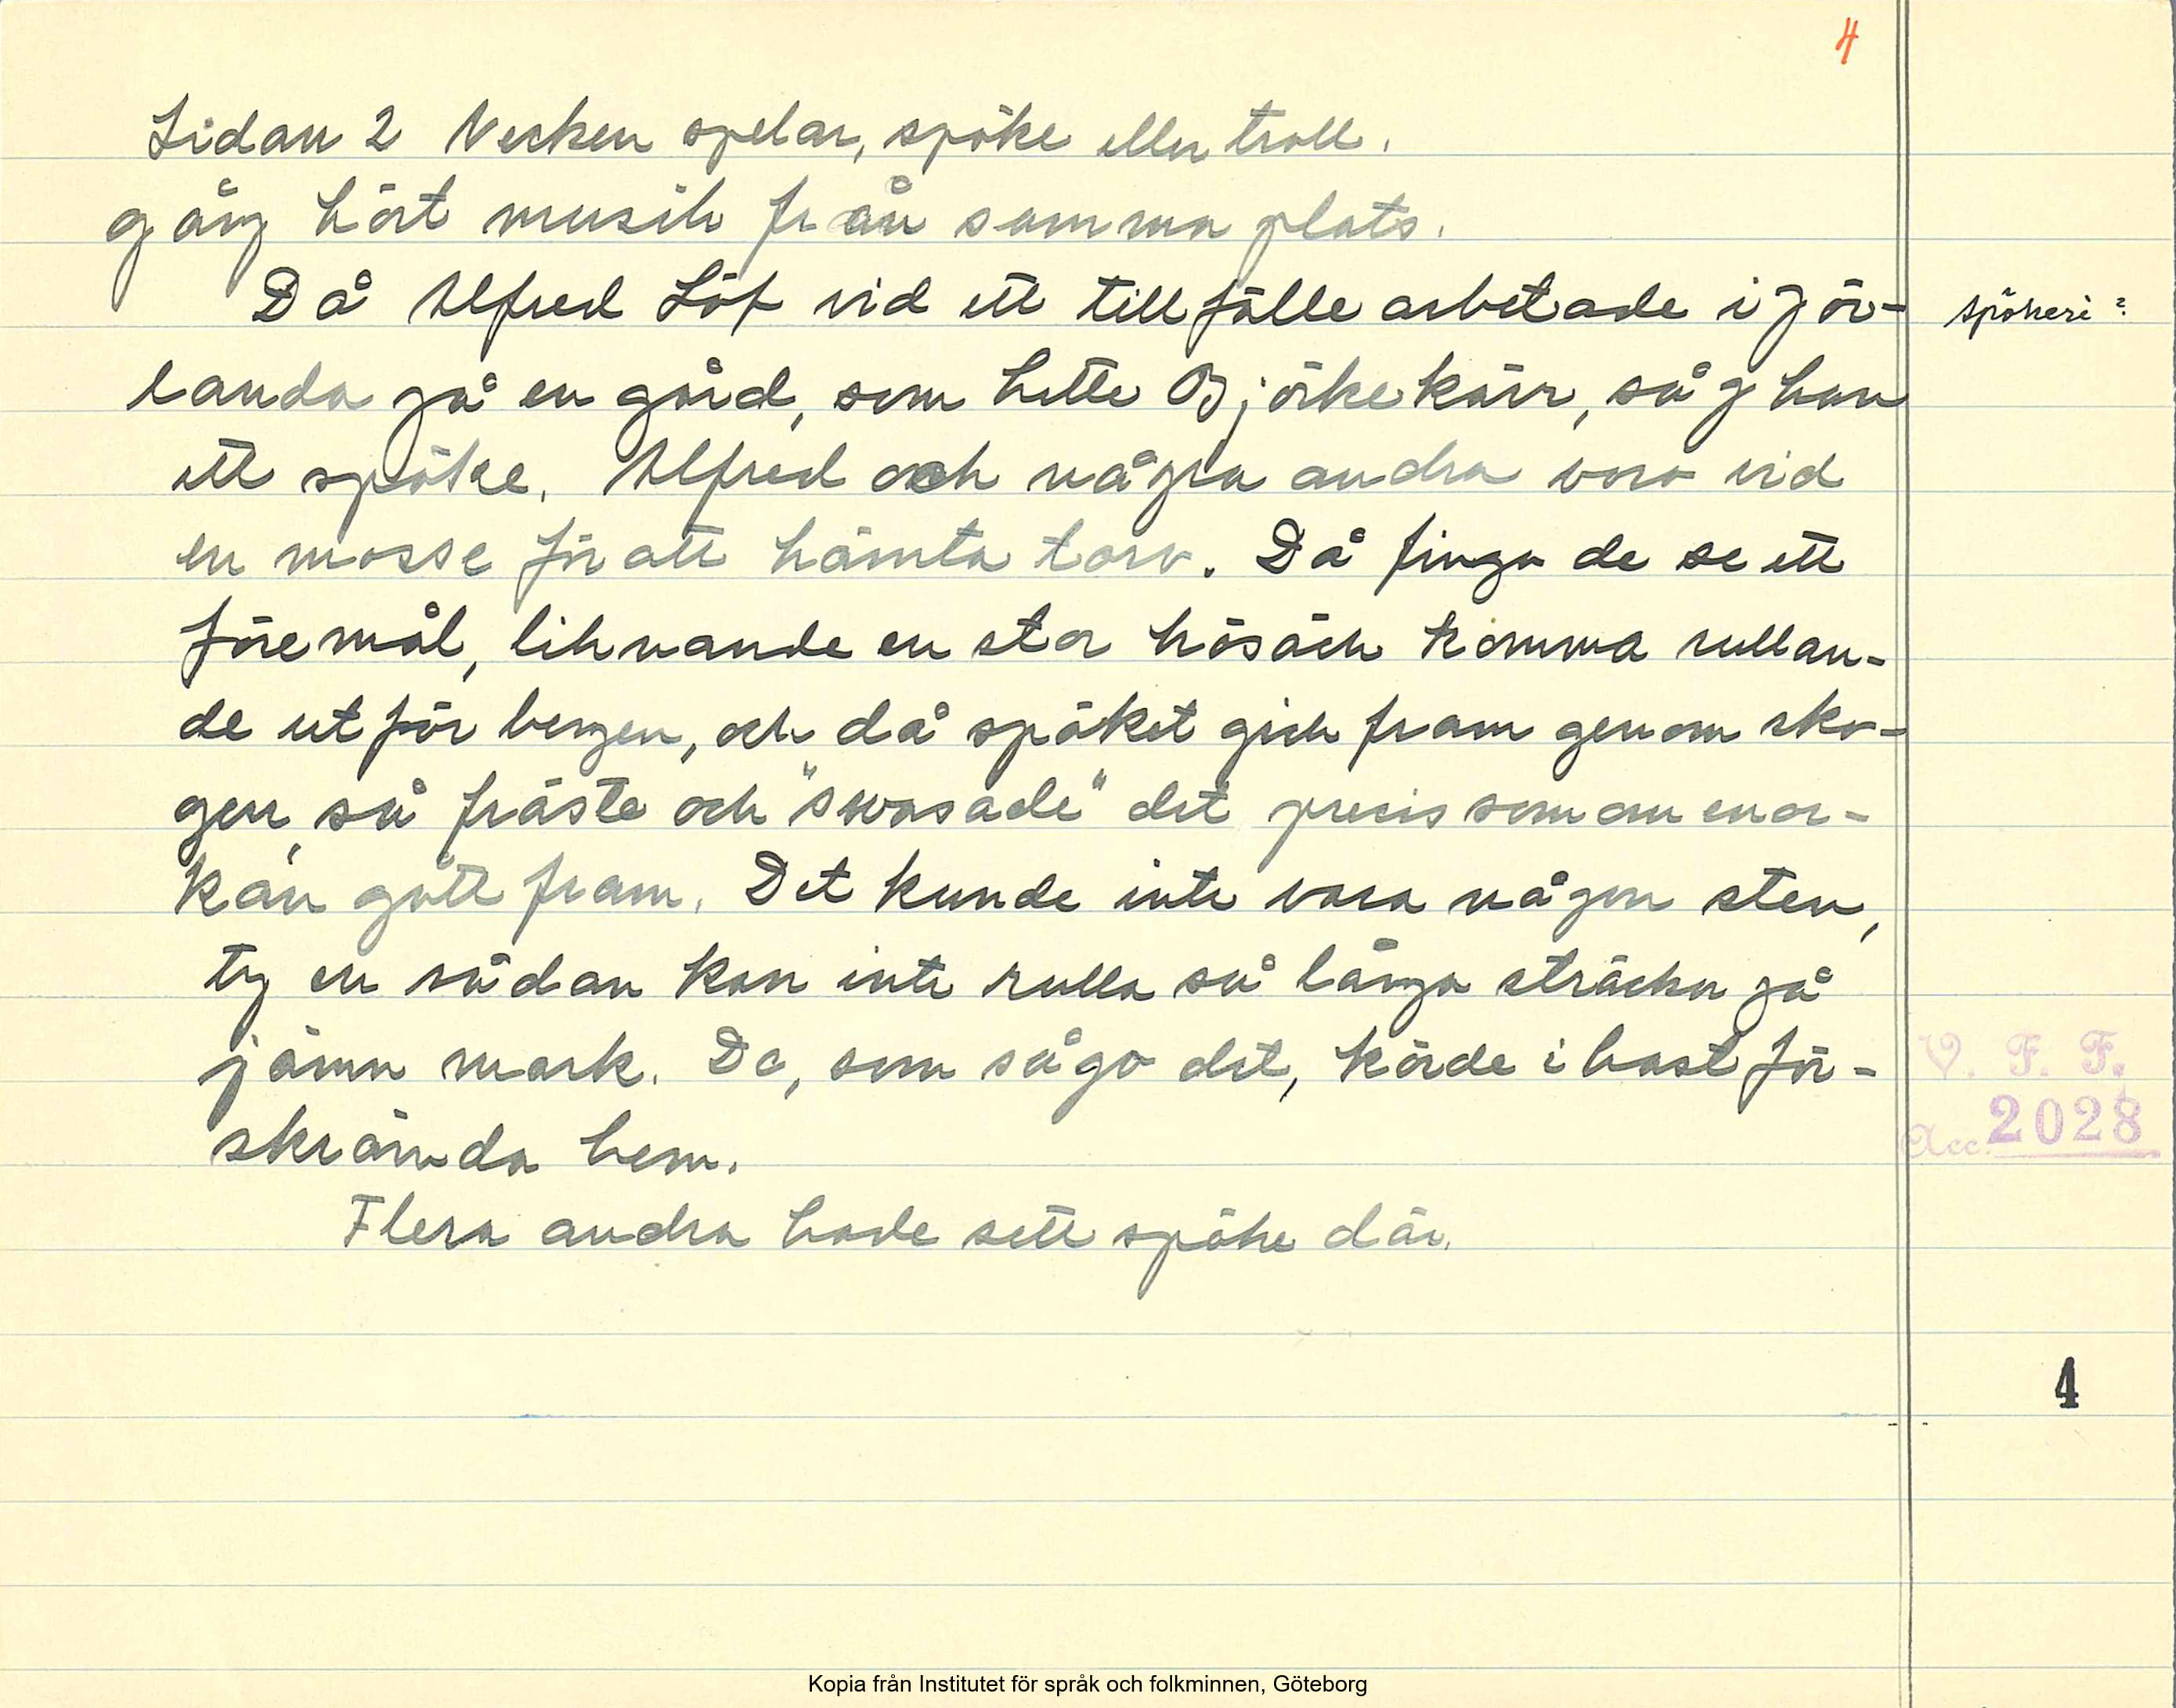 4
Sidan 2 Necken spelar, spöke eller troll.
gång hört musik från samma plats.
Då Alfred Löf vid ett tillfälle arbetade i Jör-
spökeri?
landa på en gård, som hette Björkekärr, såg han
ett spöke. Alfred och några andra voro vid
en mosse för att hämta torv. Då fingo de se ett
föremål, liknande en stor hösäck komma rullan-
de utför bergen, och då spöket gick fram genom sko-
gen, så fräste och "svasade" det precis som om en or-
kan gått fram. Det kunde inte vara någon sten,
ty en sådan kan inte rulla så långa sträckor på
jämn mark. De, som sågo det, körde i hast för-
skrämda hem.
V. F. F.
Acc. 2028
Flera andra hade sett spöke där.
4
Kopia från Institutet för språk och folkminnen, Göteborg